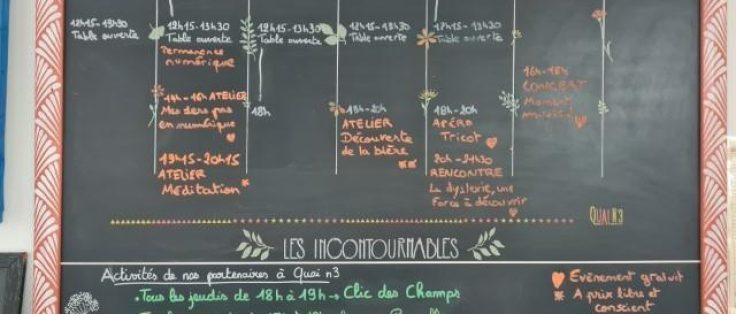 12h15-13h30
Table ouverte
12h15-13h30
Table ouverte
Permanence
numérique
14h-16h ATELIER
Mes 1ers pas
en numérique
19h15-20h15
ATELIER
Méditation
12h15-13h30
Table ouverte
18h
12h15-13h30
Table ouverte
18h-20h
ATELIER
Découverte
de la bière
12h15-13h30
Table ouverte
18h-20h
APÉRO
Tricot
20h-21h30
RENCONTRE
La dyslexie, une
force à découvrir
16h-18h
CONCERT
Moment
musical
QUAI N3
LES INCONTOURNABLES
Activités de nos partenaires à Quai n3
• Tous les jeudis de 18h à 19h → Clic des Champs
Evènement gratuit
A prix libre et
conscient